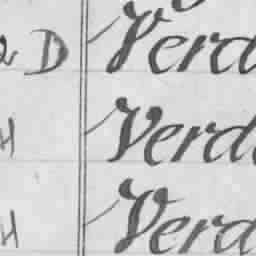 2 D Verd
H Verd
H Verd